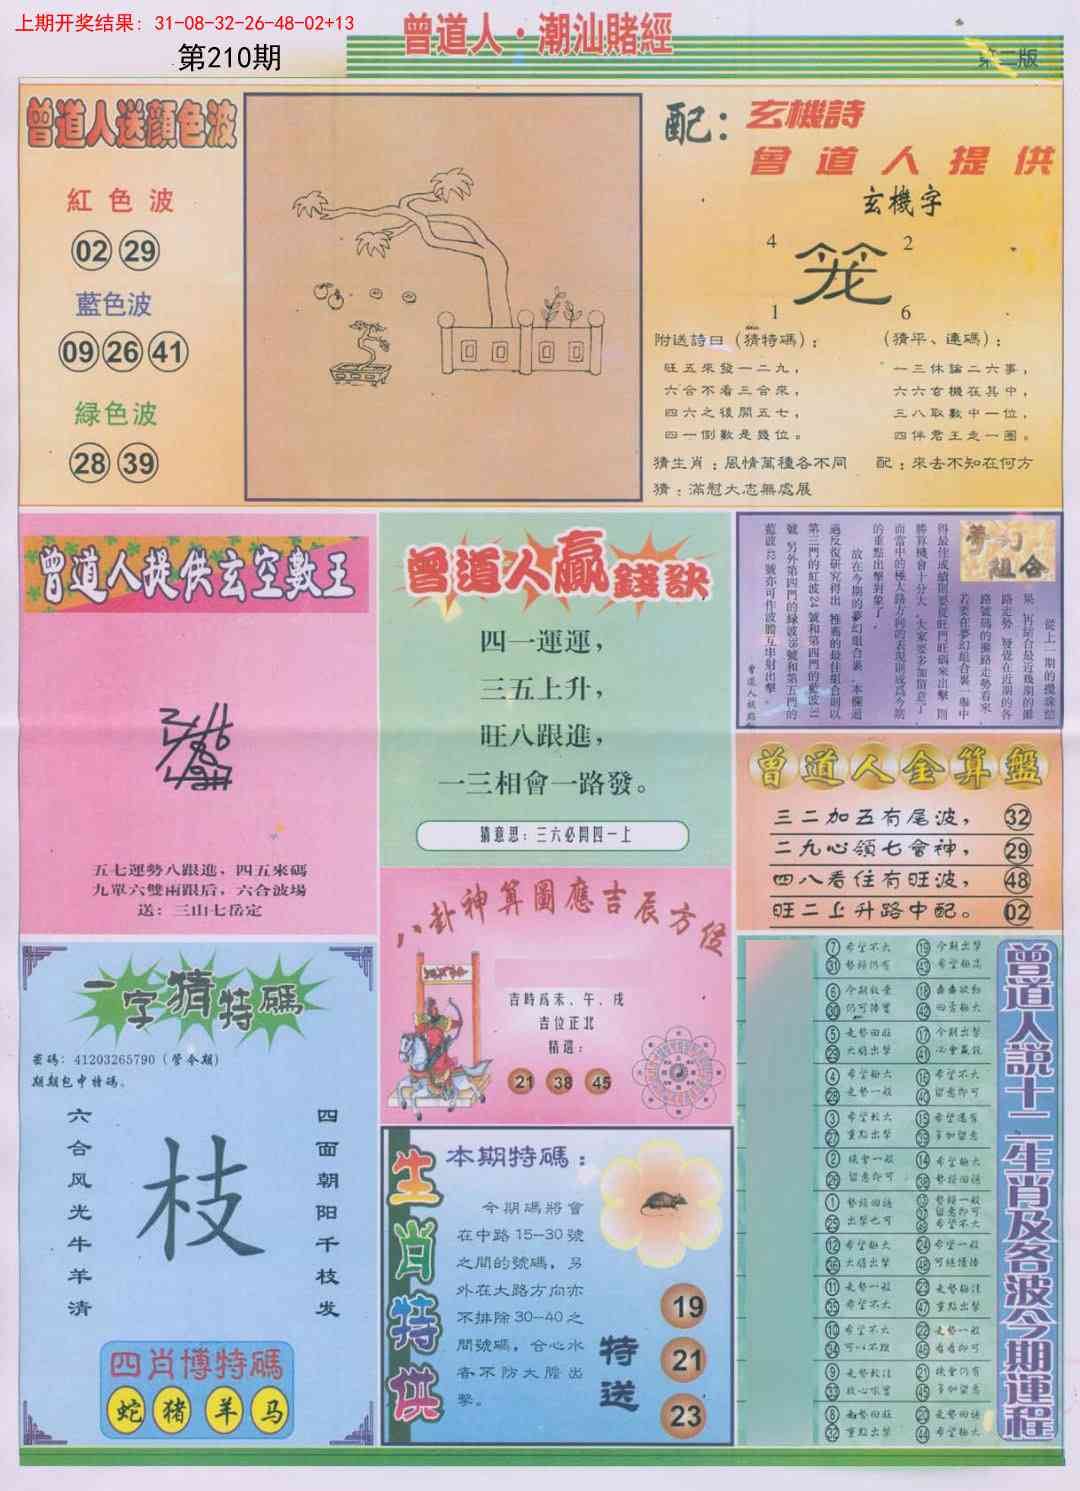 上期开奖结果：31-08-32-26-48-02+13
第210期
曾道人·潮汕賭經
第二版
曾道人送顔色波
紅色波
02 29
藍色波
09 26 41
緑色波
28 39
配：玄機詩
曾道人提供
玄機字
4 2
笼
1 6
附送詩曰（猜特碼）：
旺五來發一二九，
六合不看三合來，
四六之後開五七，
四一倒數是幾位。
（猜平、連碼）：
一三休論二六事，
六六玄機在其中，
三八取數中一位，
四伴君王走一圈。
猜生肖：風情萬種各不同
配：來去不知在何方
猜：滿慰大志無處展
曾道人提供玄空數王
五七運勢八跟進、四五來碼
九單六雙兩跟后，六合波場
送：三山七岳定
曾道人贏錢訣
四一運運，
三五上升，
旺八跟進，
一三相會一路發。
猜意思：三六必開四一上
夢幻組合
從上一期的攪珠結
果，再結合最近幾期的攤
路走勢，發覺在近期的各
路號碼的攤路走勢看來，
若要在夢幻組合裏一舉中
得最佳成績則要從旺門旺碼來出擊，則
勝算機會十分大，大家要多加留意了，
而當中的極大路方向的表現則成爲今期
的重點出擊對象了．
放在今期的夢幻組合裏，本欄通
過反復研究得出，推薦的最佳組合則以
第三門的紅波24號和第四門的藍波31
號，另外第四門的緑波38號和第五門的
藍波42號亦可作波膽互串射出擊。
曾道人金算盤
三二加五有尾波， 32
二九心領七會神， 29
四八看住有旺波， 48
旺二上升路中配。 02
八卦神算圖應吉辰方位
吉時爲未、午、戌
吉位正北
精選：
21 38 45
一字猜特碼
密碼：41203265790（管今期）
期期包中特碼。
六合风光牛羊清
枝
四面朝阳千枝发
四肖博特碼
蛇 猪 羊 马
生肖特供
本期特碼：
今期碼將會
在中路15—30號
之間的號碼，另
外在大路方向亦
不排除30—40之
間號碼，合心水
者不防大膽出
擊。
特送
19
21
23
曾道人説十二生肖及各波今期運程
7 希望不大 19 今期出擊
31 勢頭仍有 43 希望極高
6 今期收最 18 蠢蠢欲動
30 仍可捧場 42 四雲極大
5 走勢回旺 17 今期出擊
29 大膽出擊 41 必會贏錢
4 希望極大 16 希望不大
28 走勢一般 40 留意即可
3 希望較大 15 希望還有
27 重點出擊 39 多加留意
2 機會一般 14 希望極大
26 留意即可 38 勢頭回穩
1 勢頭回穩 13 勢頭一般
25 出擊也可 37 留意即可
49 希望不大
12 希望極大 24 希望一般
36 大膽出擊 48 可繼續捧
11 走勢一般 23 走勢極佳
35 希望不大 47 重點出擊
10 希望不大 22 走勢一般
34 可以不理 46 看看即可
9 走勢較佳 21 機會仍有
33 放心吼實 45 多加留意
8 走勢回旺 20 走勢回穩
32 重點出擊 44 希望極大